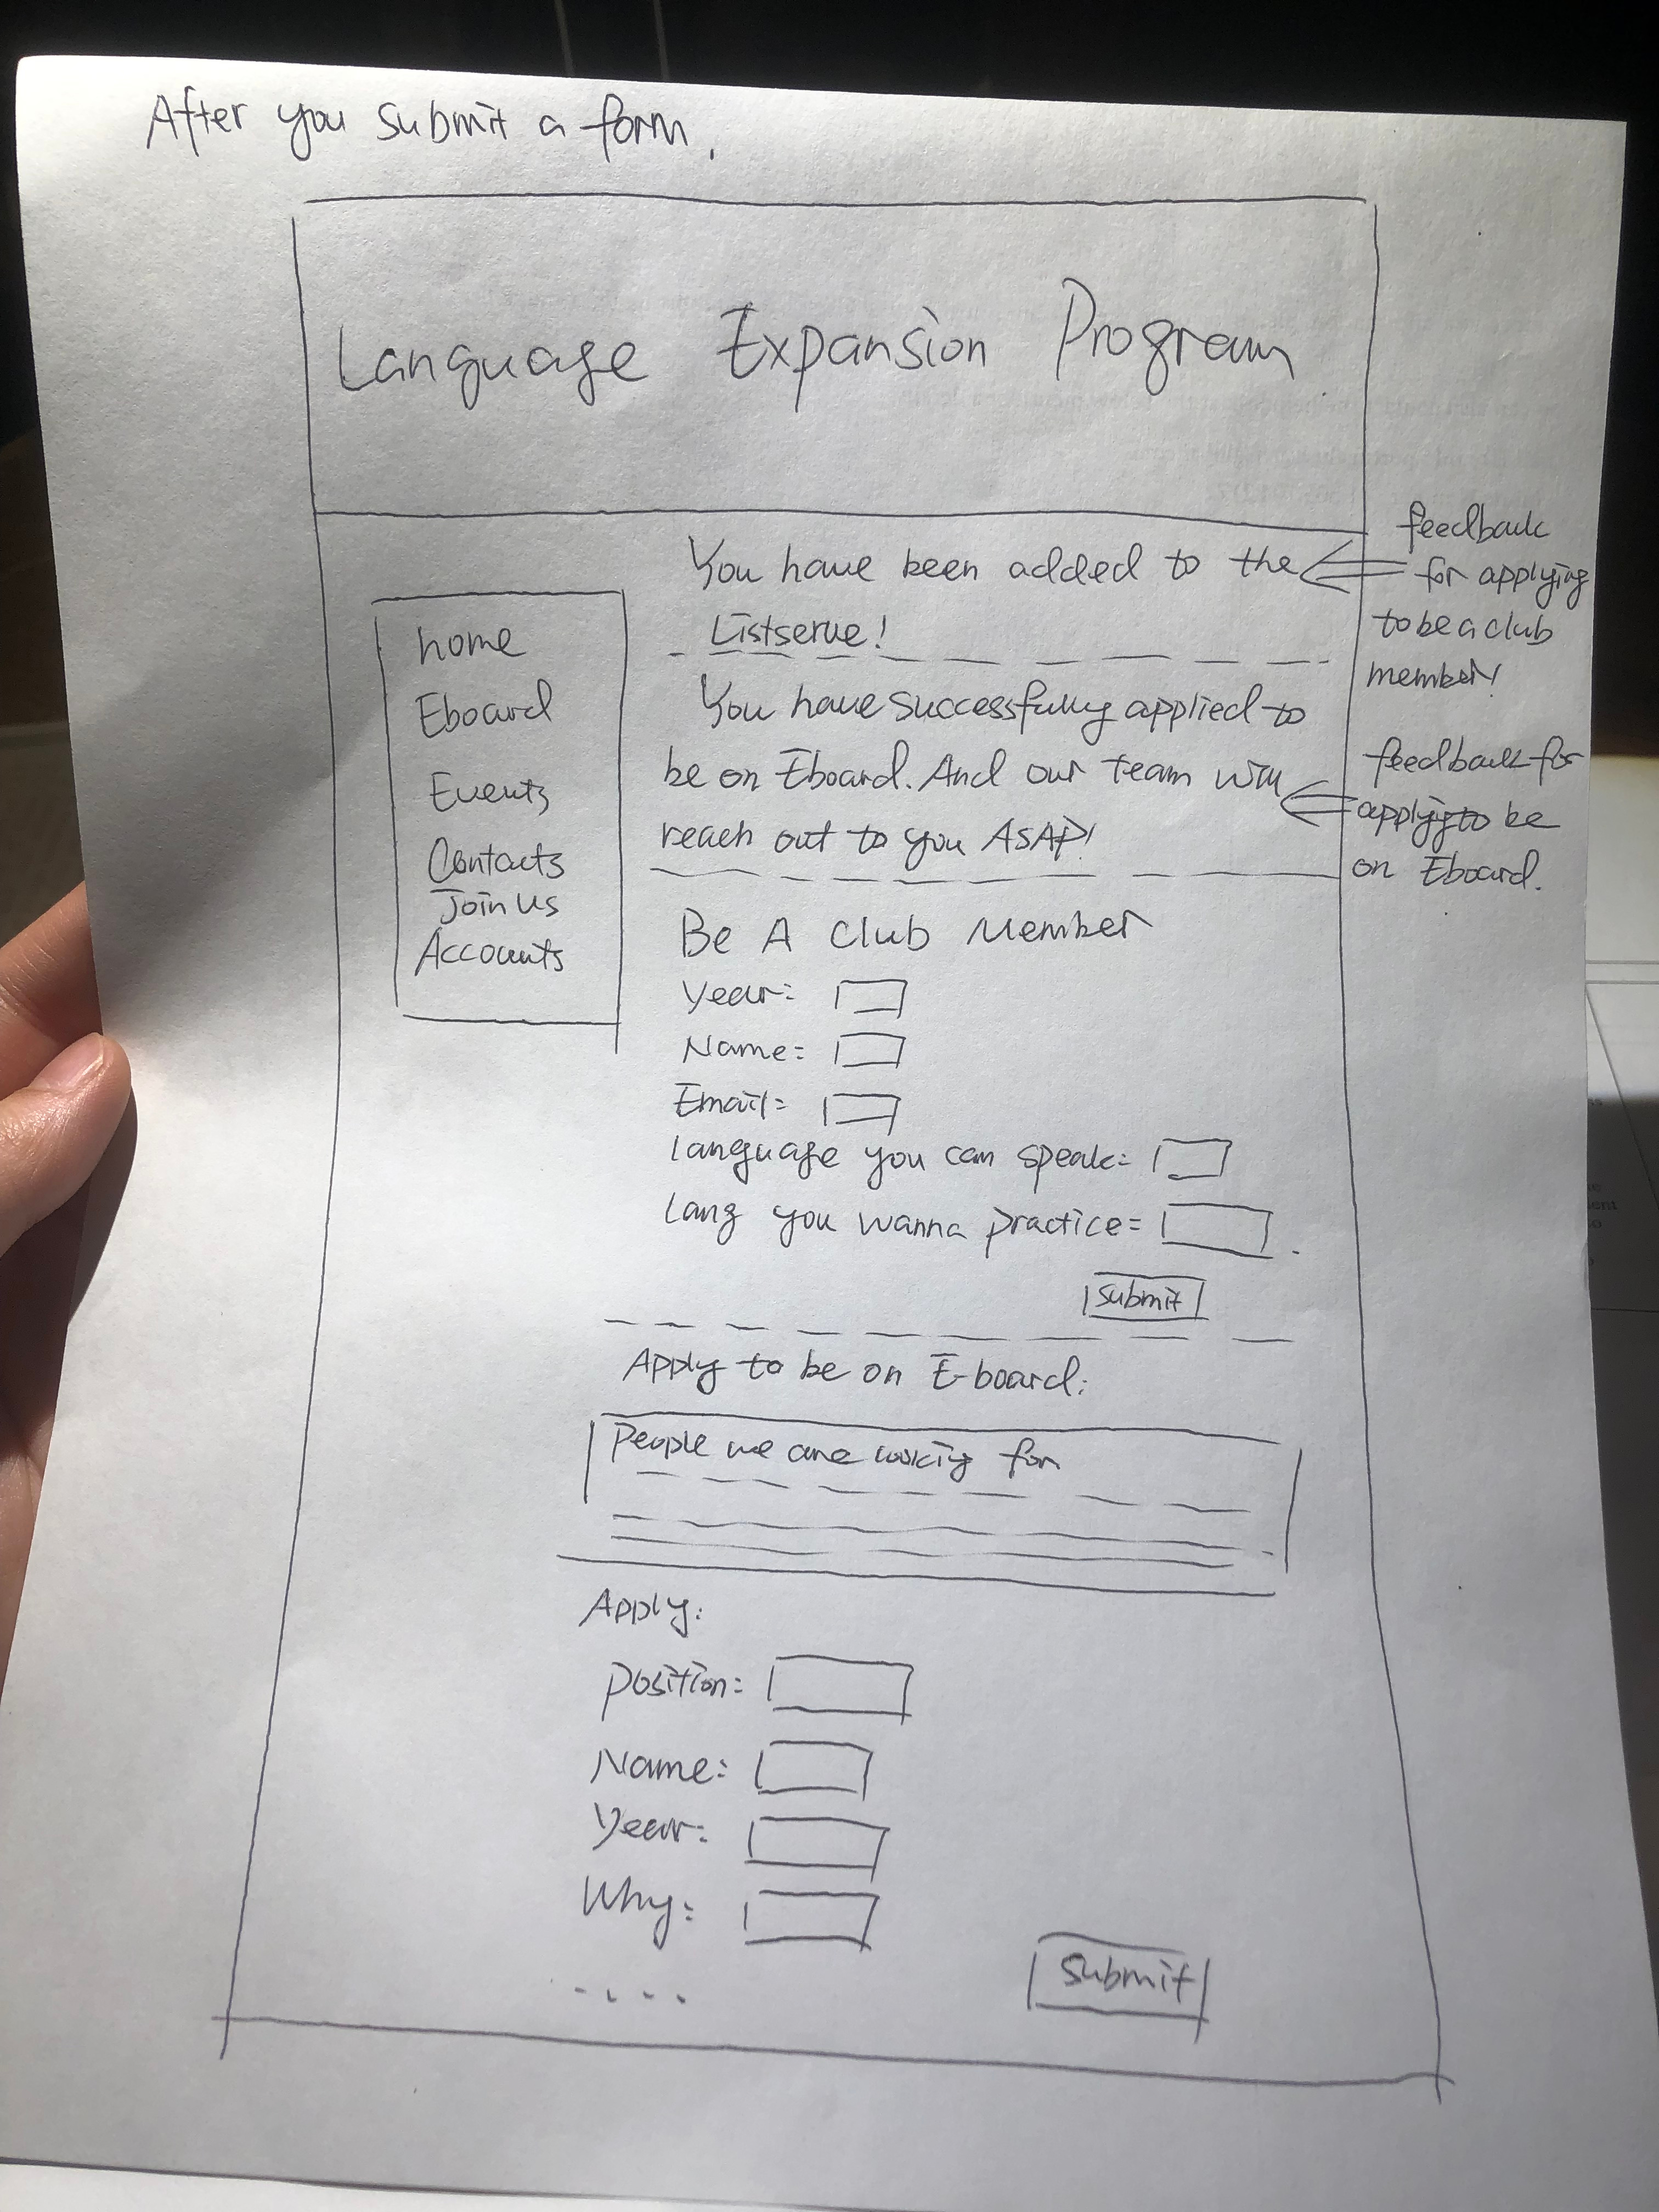 After you submit a form,
Language Expansion Program
home
Eboard
Events
Contacts
Join Us
Accounts
You have been added to the
Listserve!
feedback
for applying
to be a club
member!
You have successfully applied to
be on Eboard. And our team will
reach out to you ASAP!
feedback for
applying to be
on Eboard.
Be A Club Member
Year:
Name:
Email:
Language you can speak:
Lang you wanna practice:
submit
Apply to be on E-board:
People we are looking for
Apply:
Position:
Name:
Year:
Why:
....
submit